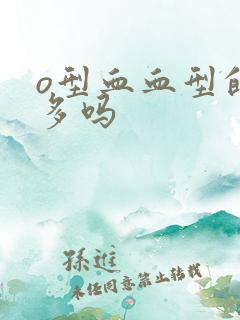 o型血血型的
多吗
孫進
未经同意禁止转载